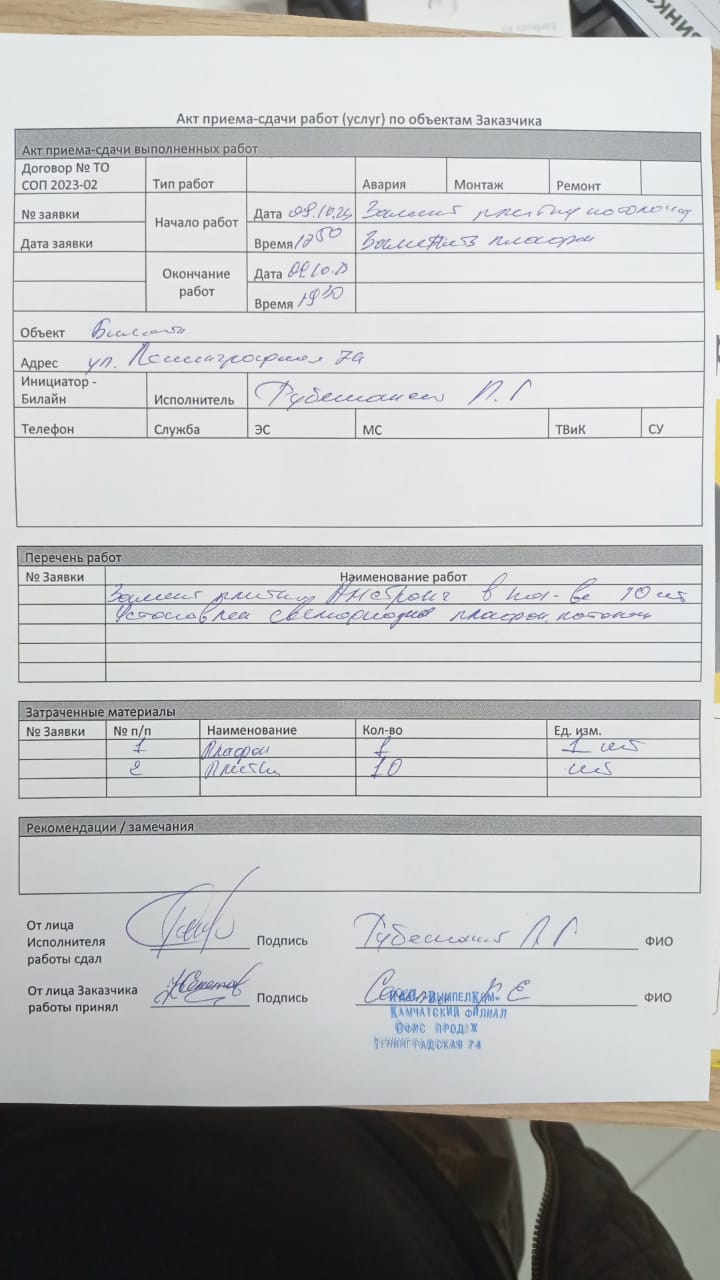 Акт приема-сдачи работ (услуг) по объектам Заказчика
Акт приема-сдачи выполненных работ
Договор № ТО
СОП 2023-02 Тип работ Авария Монтаж Ремонт
№ заявки Начало работ Дата 09.10.24
Дата заявки Время 17 50 плафон
Окончание работ Дата 09.10.
Время 19 30
Объект
Адрес ул. 74
Инициатор -
Билайн Исполнитель П. Г
Телефон Служба ЭС МС ТВиК СУ
Перечень работ
№ Заявки Наименование работ
плитки Амстронг в кол-ве 10 шт
плафон
Затраченные материалы
№ Заявки № п/п Наименование Кол-во Ед. изм.
1 Плафон 1 1 шт
2 Плитки 10 шт
Рекомендации / замечания
От лица
Исполнителя
работы сдал Подпись П Г ФИО
От лица Заказчика
работы принял Подпись ФИО
ПАО «ВЫМПЕЛКОМ»
КАМЧАТСКИЙ ФИЛИАЛ
ОФИС ПРОДАЖ
ЛЕНИНГРАДСКАЯ 74